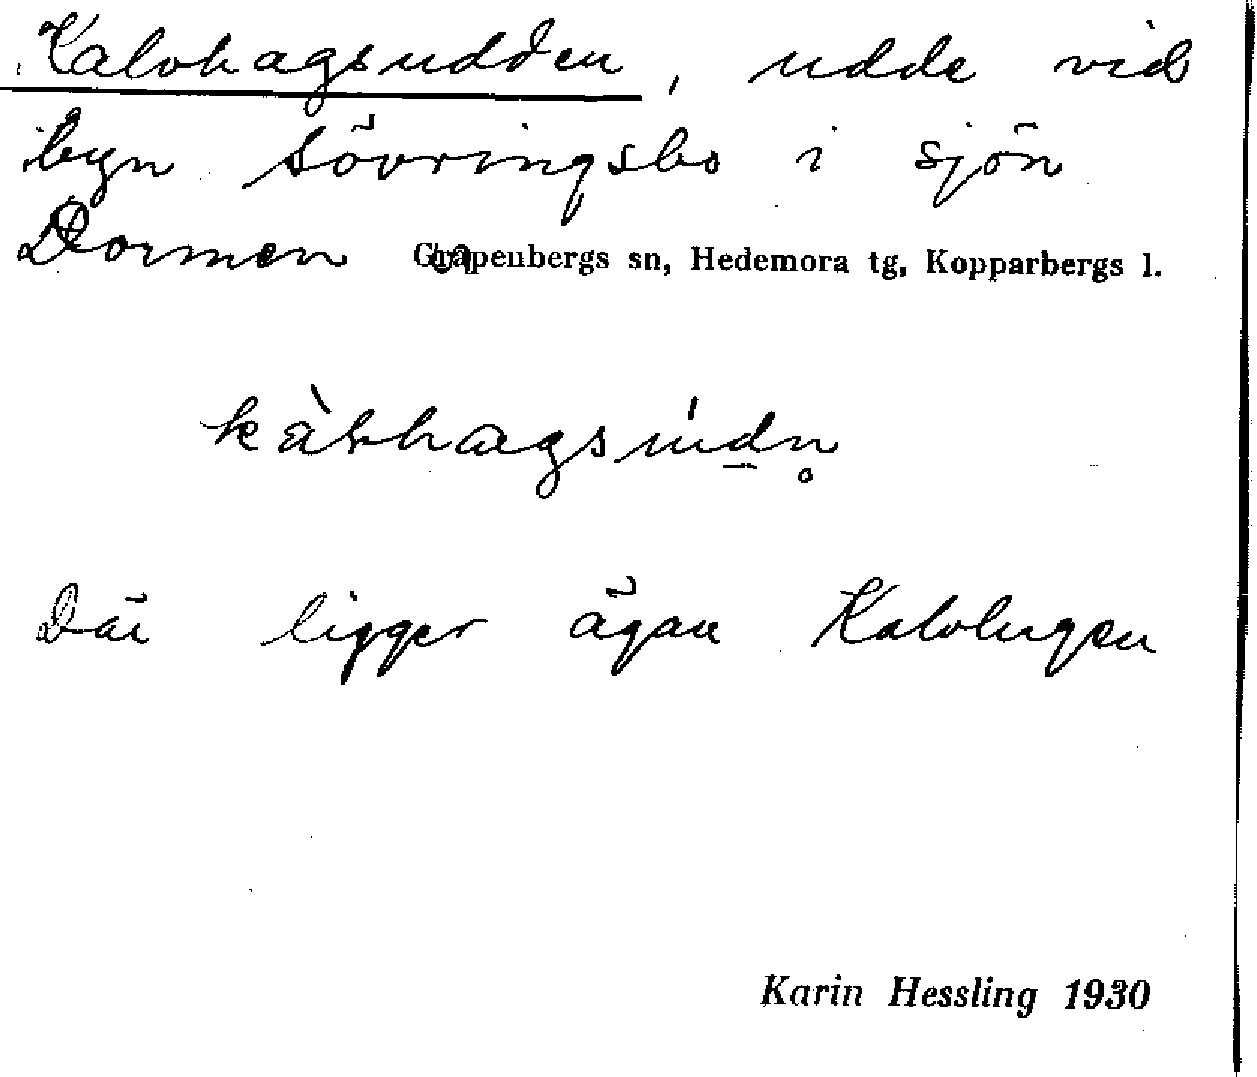 Kalvhagsudden, udde vid
byn Sövringsbo i sjön
Dormen Grapenbergs sn, Hedemora tg, Kopparbergs l.
Där ligger ägan Kalvhagen
Karin Hessling 1930